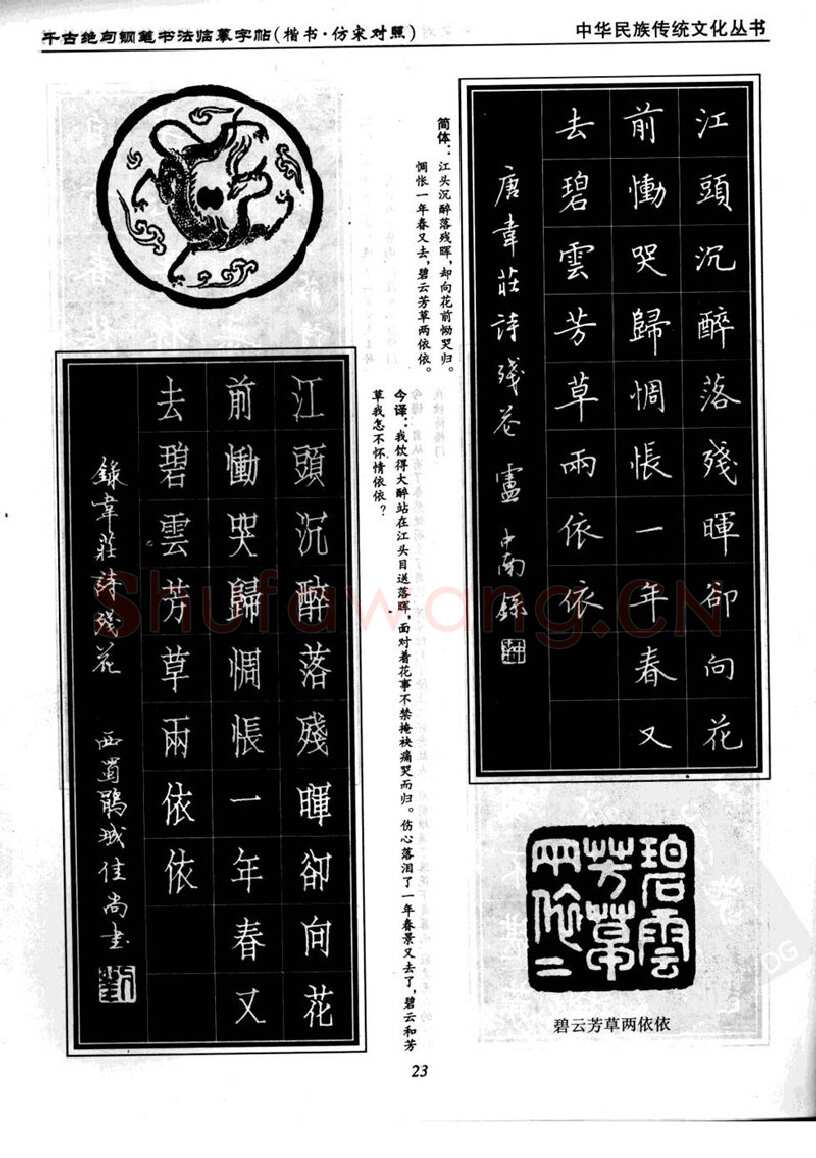 千古绝句钢笔书法临摹字帖(楷书·仿宋对照)
中华民族传统文化丛书
江頭沉醉落殘暉卻向花
前慟哭歸惆悵一年春又
去碧雲芳草兩依依
唐韋莊詩殘花 盧中南錄
简体：江头沉醉落残晖，却向花前恸哭归。
惆怅一年春又去，碧云芳草两依依。
今译：我饮得大醉站在江头目送落晖，面对着花事不禁掩袂痛哭而归。伤心落泪了一年春景又去了，碧云和芳
草我怎不怀情依依？
江頭沉醉落殘暉卻向花
前慟哭歸惆悵一年春又
去碧雲芳草兩依依
錄韋莊詩殘花 西蜀鵑城佳尚書
碧雲
芳草
兩依二
碧云芳草两依依
23
Shufawang.CN